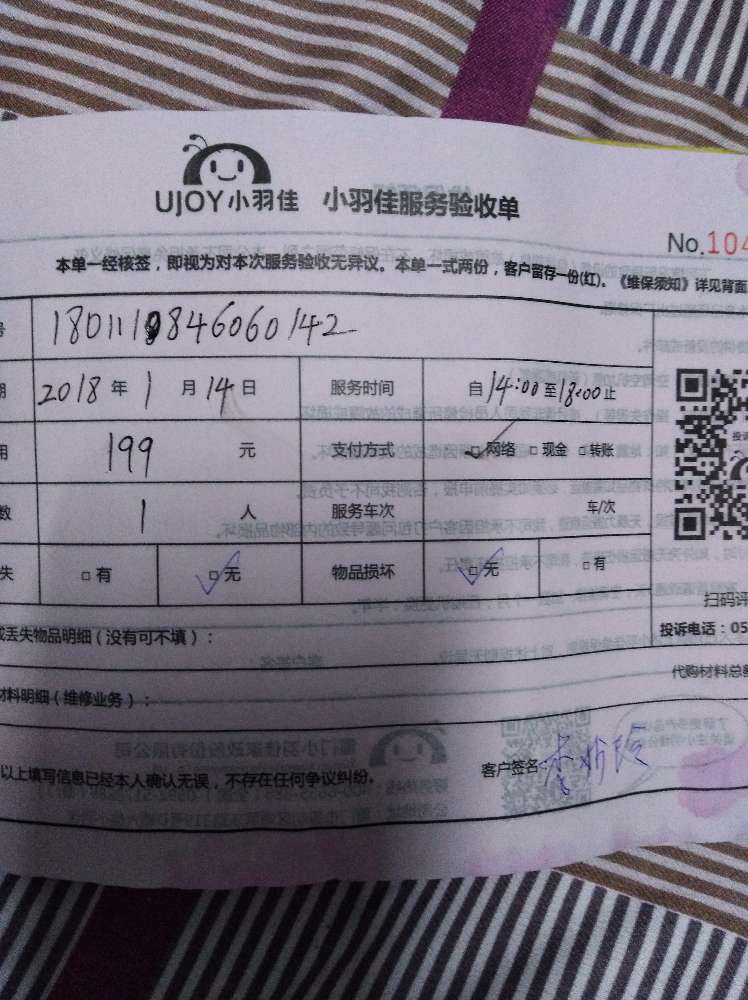 UJOY小羽佳 小羽佳服务验收单
No.104
本单一经核签，即视为对本次服务验收无异议。本单一式两份，客户留存一份(红)。《维保须知》详见背面
号
期 2018年1月14日 服务时间 自14:00至18:00止
用 199 元 支付方式 □网络 □现金 □转账
数 1 人 服务车次 车/次
失 □有 □无 物品损坏 □无 □有
投诉
扫码评
或丢失物品明细（没有可不填）：
投诉电话：05
材料明细（维修业务）：
代购材料总额
以上填写信息已经本人确认无误，不存在任何争议纠纷。 客户签名: